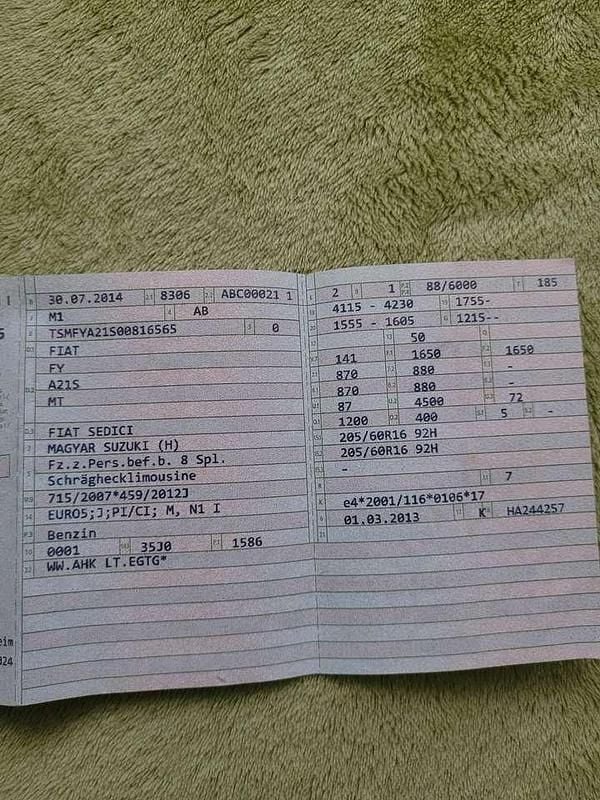 30.07.2014 8306 ABC00021 1
M1 AB
TSMFYA21S00816565 0
FIAT
FY
A21S
MT
FIAT SEDICI
MAGYAR SUZUKI (H)
Fz.z.Pers.bef.b. 8 Spl.
Schräghecklimousine
715/2007*459/2012J
EURO5;J;PI/CI; M, N1 I
Benzin
0001 35J0 1586
WW.AHK LT.EGTG*
2 1 88/6000 185
4115 - 4230 1755-
1555 - 1605 1215--
50
141 1650 1650
870 880 -
870 880 -
87 4500 72
1200 400 5 -
205/60R16 92H
205/60R16 92H
-
7
e4*2001/116*0106*17
01.03.2013 K HA244257
eim
324